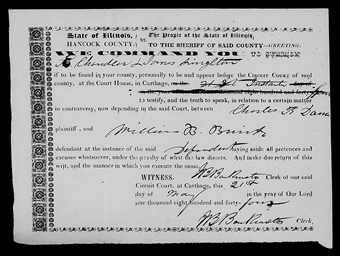 State of Illinois, The People of the State of Illinois,
HANCOCK COUNTY, TO THE SHERIFF OF SAID COUNTY—GREETING:
WE COMMAND YOU
Chandler & James
if to be found in your county, personally to be and appear before the Circuit Court of said
county, at the Court House, in Carthage,
eight hundred and forty four
to testify, and the truth to speak, in relation to a certain matter
in controversy, now depending in the said Court, between Charles
plaintiff, and William
defendant at the instance of the said Defendant laying aside all pretences and
excuses whatsoever, under the penalty of what the law directs. And make due return of this
writ, and the manner in which you execute the same.
WITNESS. Clerk of our said
Circuit Court, at Carthage, this 21st
day of May in the year of our Lord
one thousand eight hundred and forty-four
Clerk,